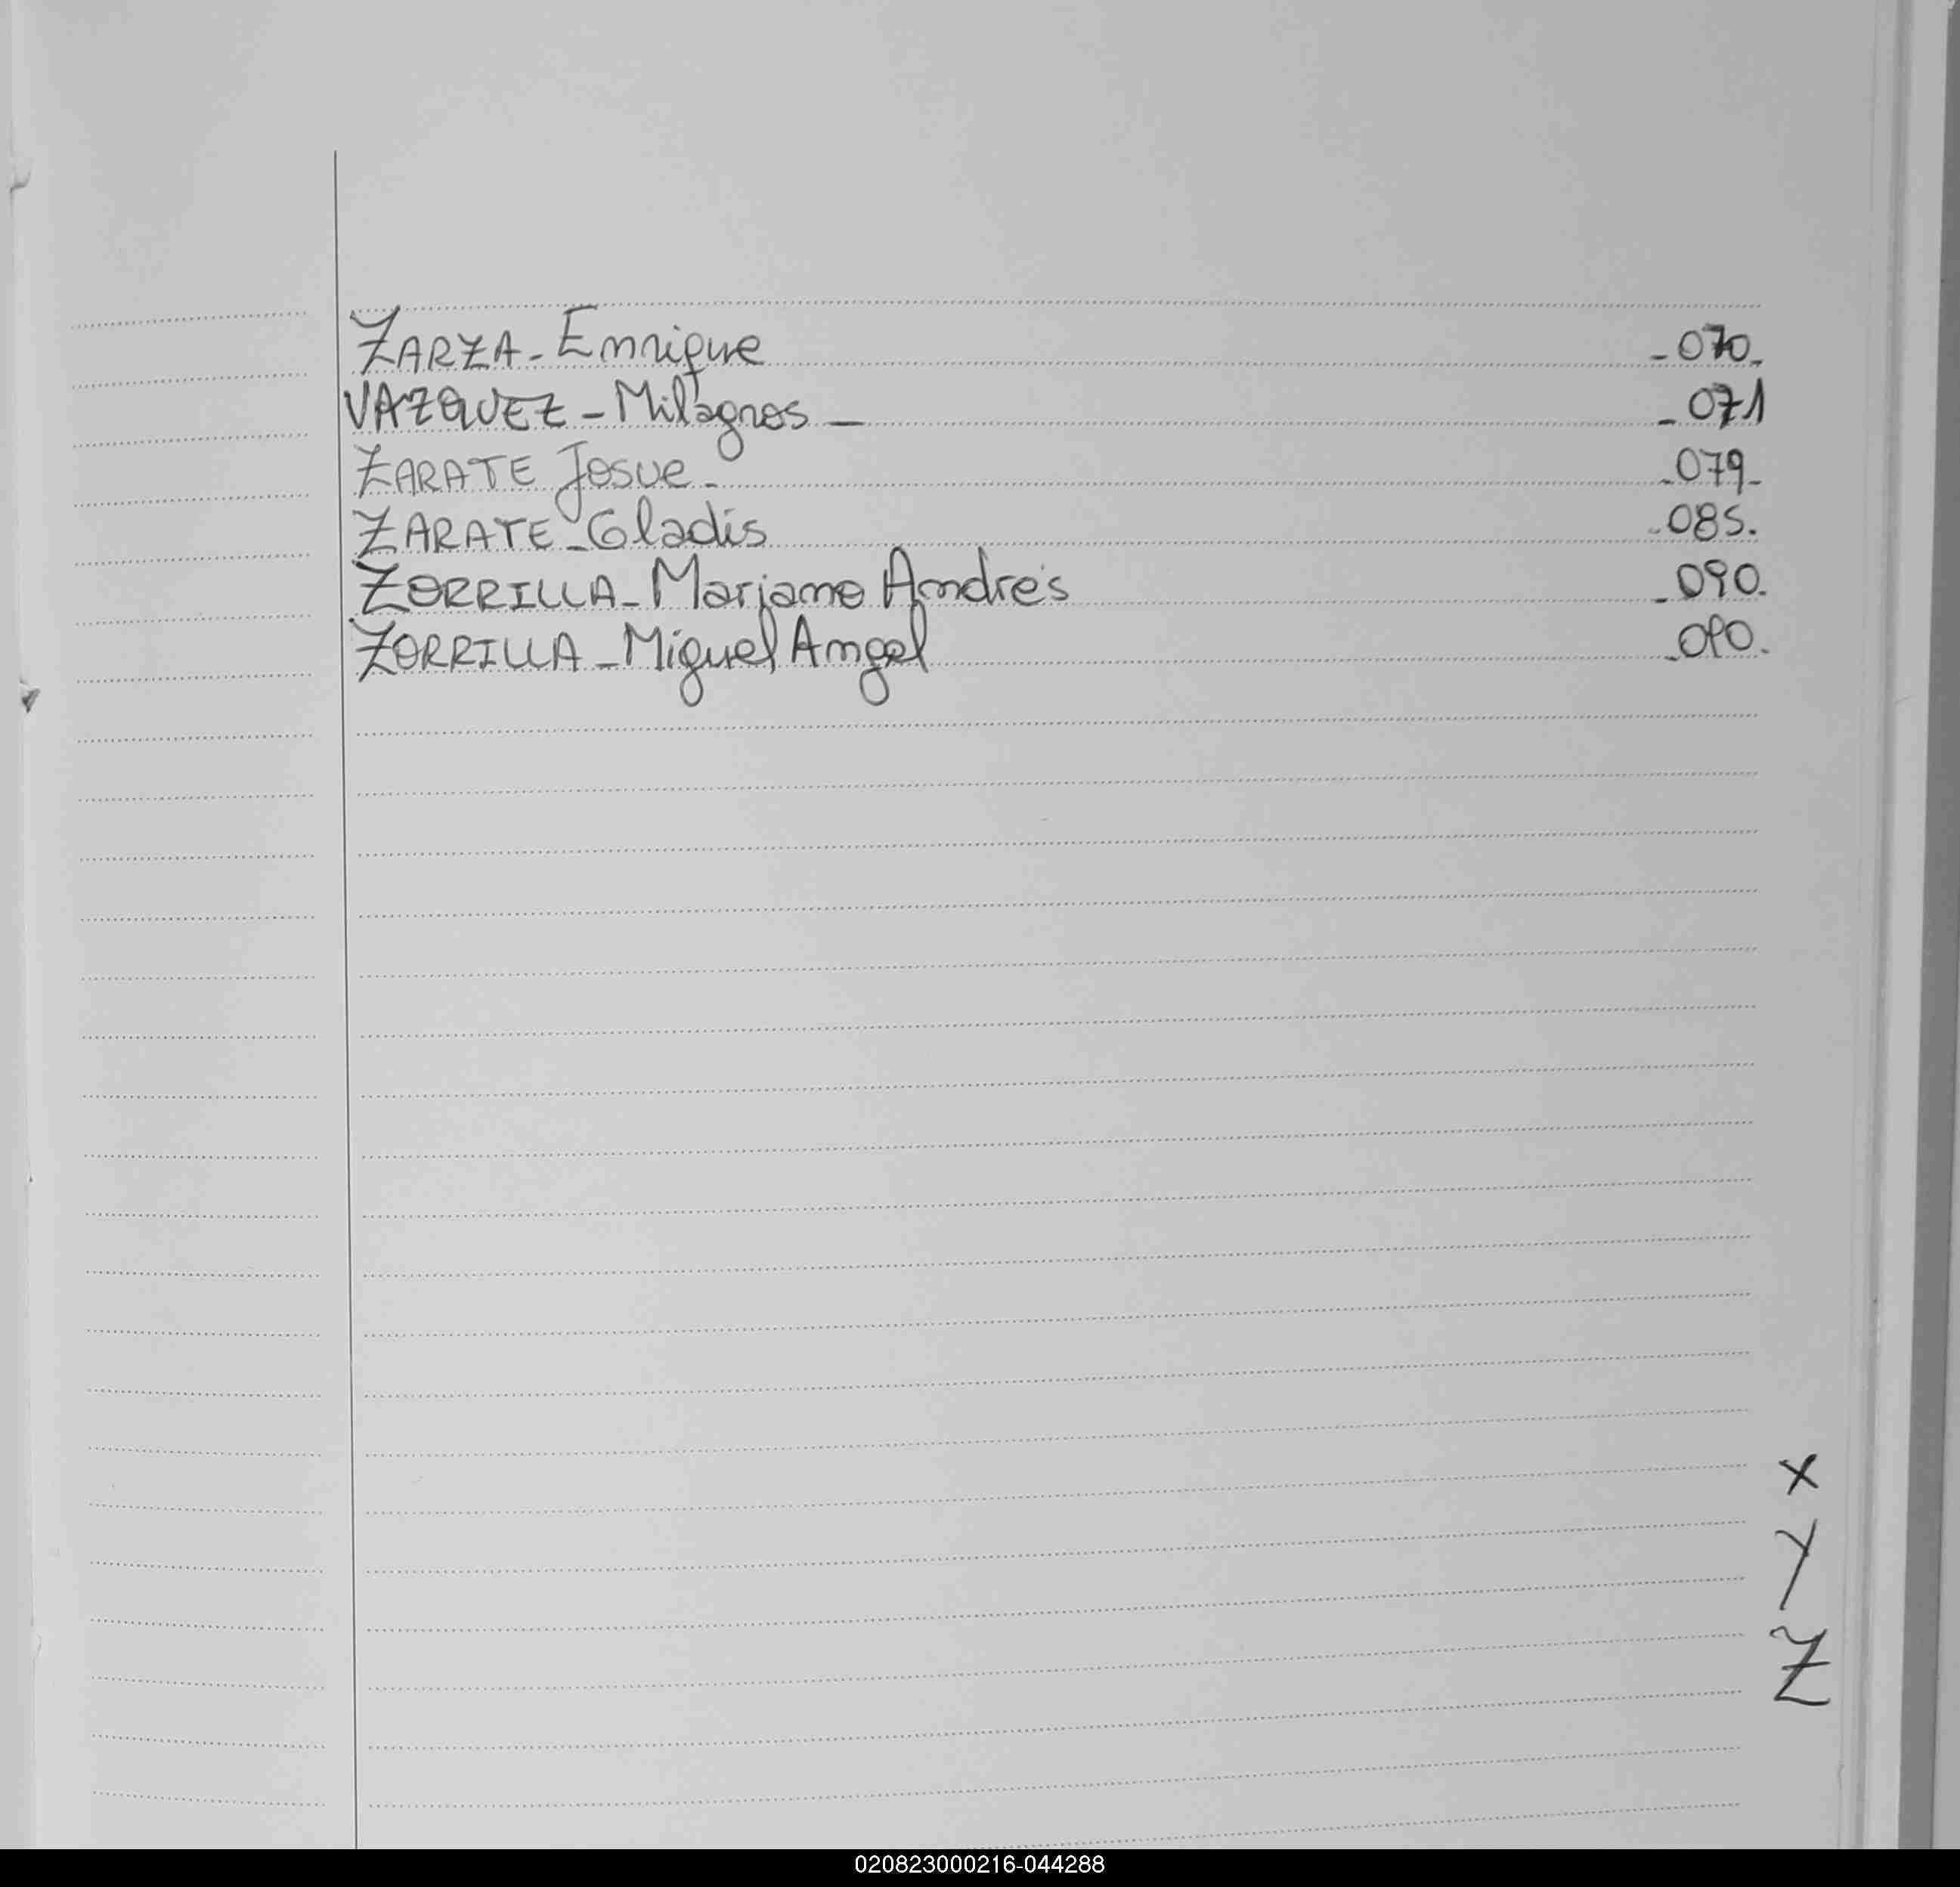 ZARZA - Enrique - 070 -
VAZQUEZ - Milagros - - 071
ZARATE Josue - - 079 -
ZARATE - Gladis - 085.
ZORRILLA - Mariano Andrés - 090.
ZORRILLA - Miguel Angel - 090.
X
Y
Z
020823000216-044288